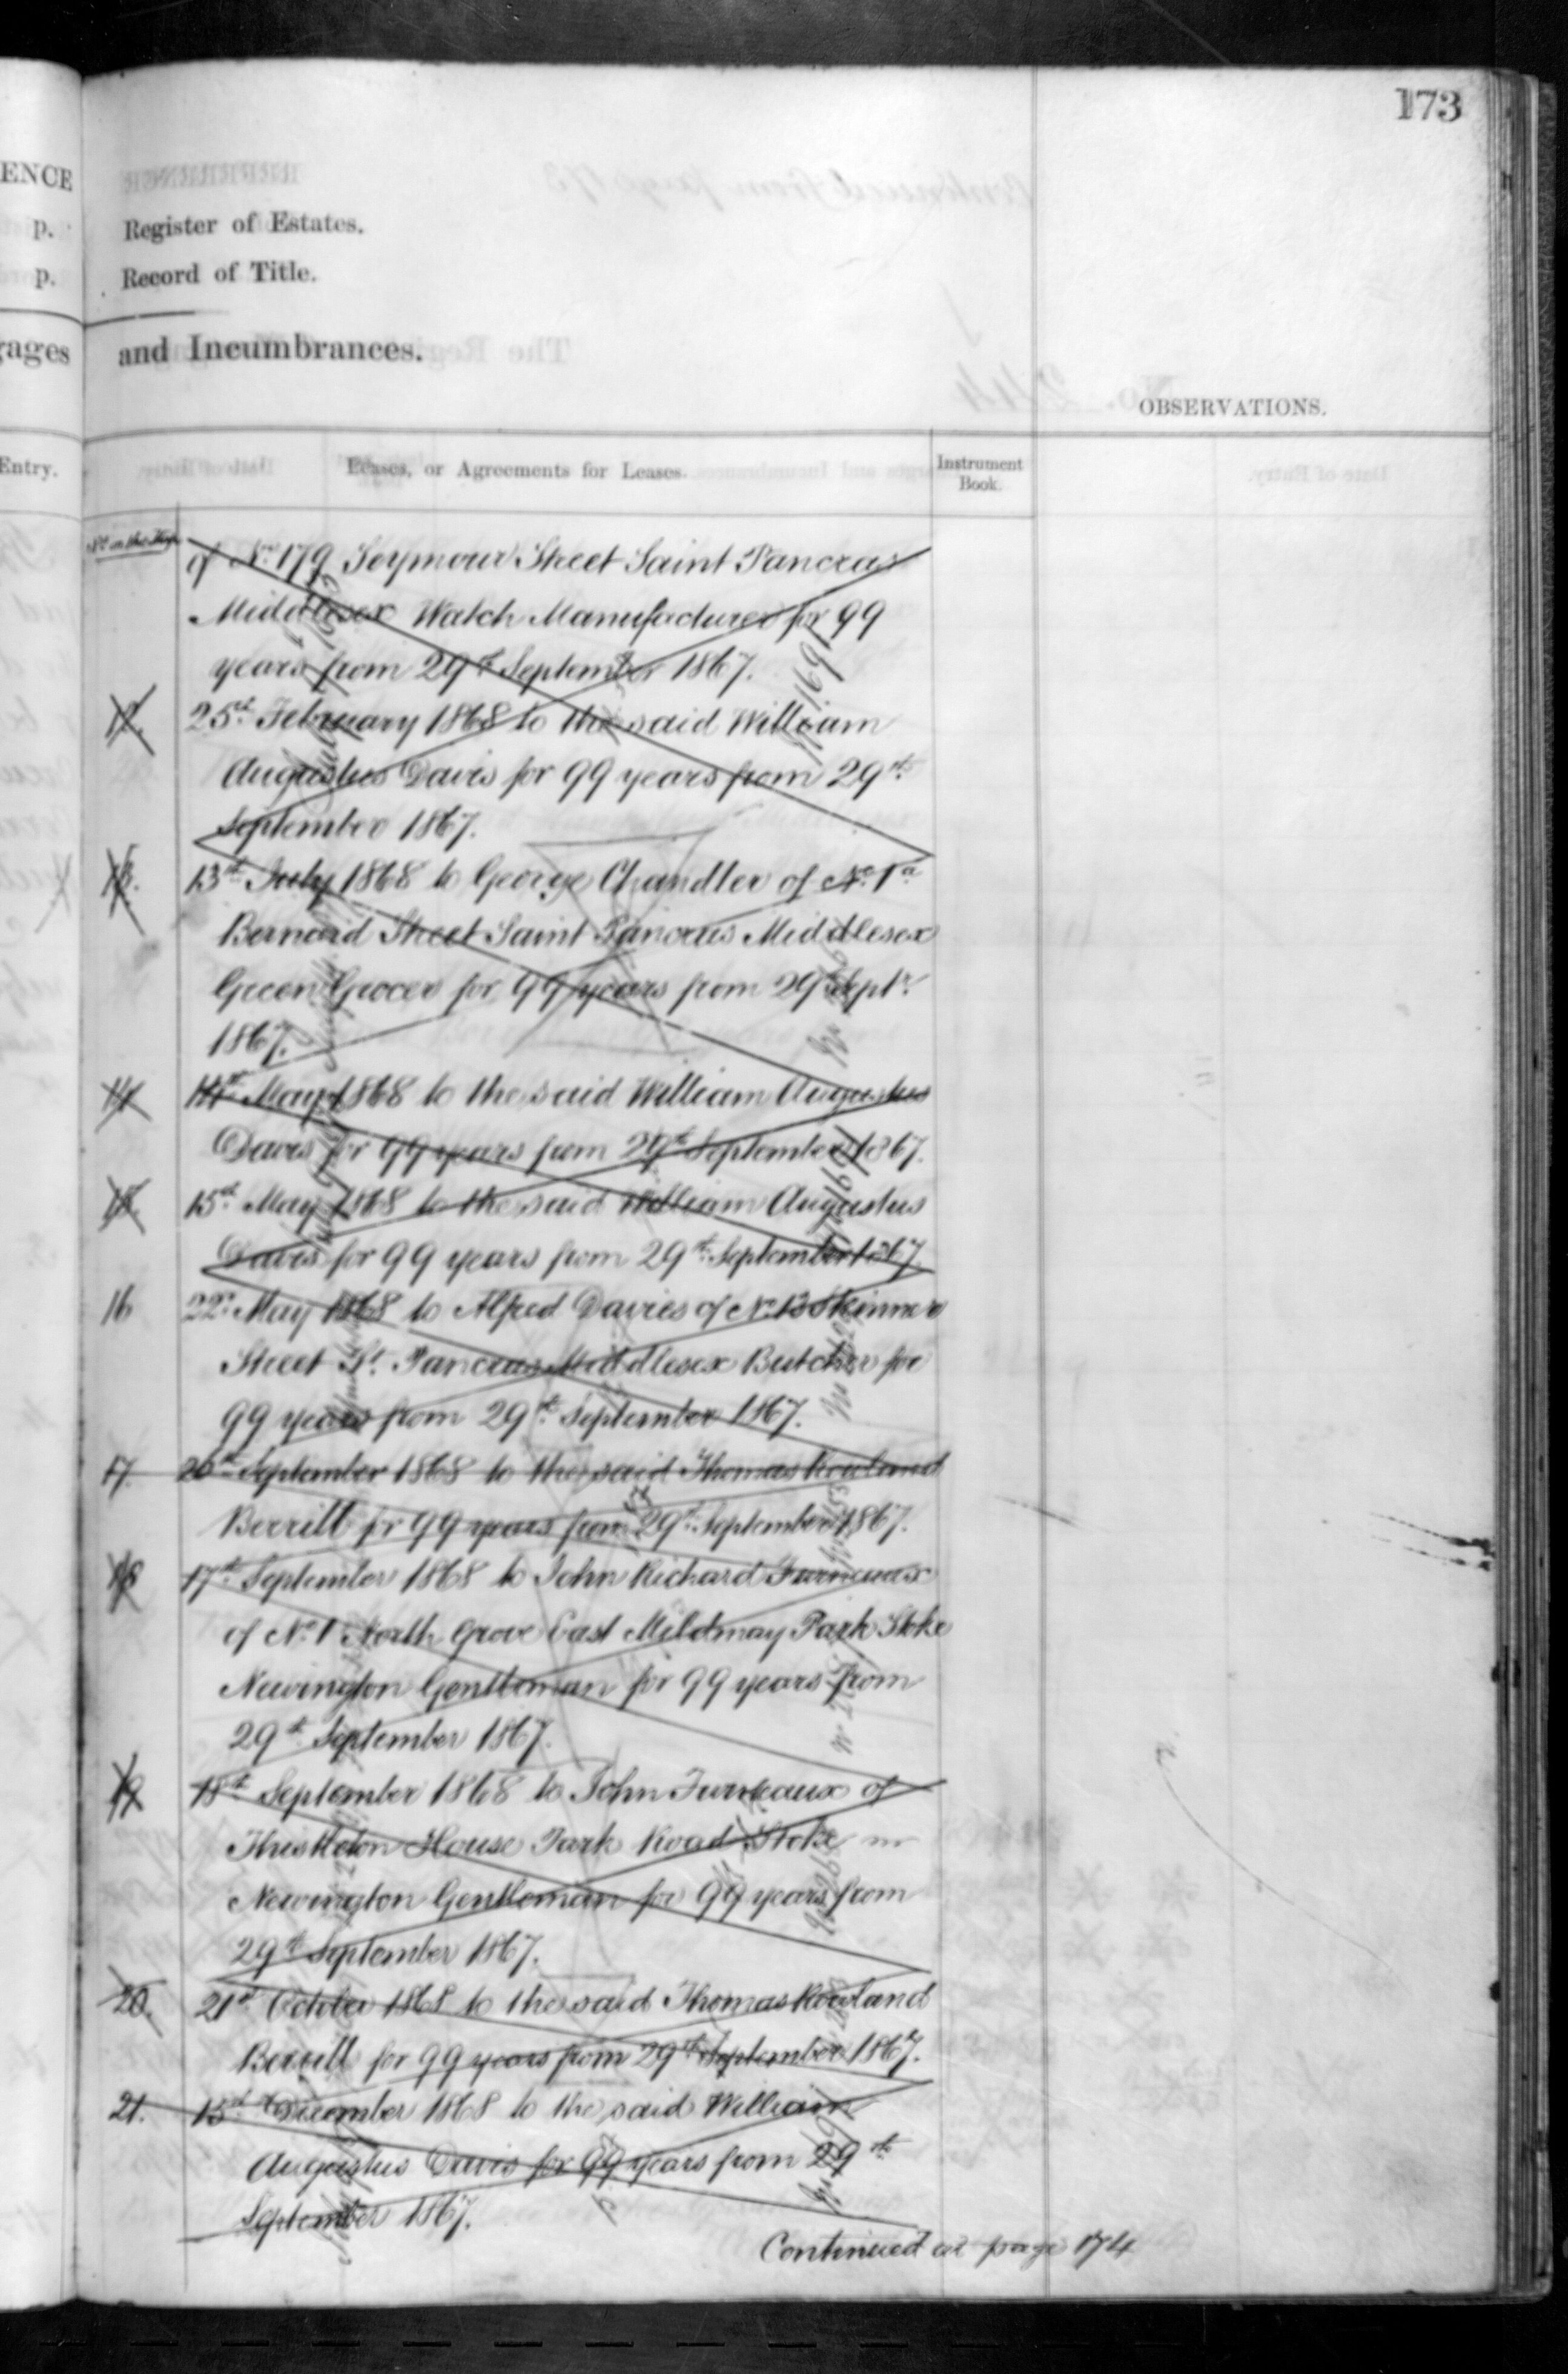 173
ENCE
p.
Register of Estates.
p.
Record of Title.
gages
and Incumbrances.
OBSERVATIONS.
Entry.
Leases, or Agreements for Leases.
Instrument
Book.
No. on the Map
of No. 179 Seymour Street Saint Pancras
Middlesex Watch Manufacturer for 99
years from 29th September 1867.
12. 25th February 1868 to the said William
Augustus Davis for 99 years from 29th
September 1867.
13. 13th July 1868 to George Chandler of No. 1a
Bernard Street Saint Pancras Middlesex
Green Grocer for 99 years from 29 Septr.
1867.
14 14th May 1868 to the said William Augustus
Davis for 99 years from 29th September 1867.
15. 15th May 1868 to the said William Augustus
Davis for 99 years from 29th September 1867
16 22nd May 1868 to Alfred Davies of No. 13 Skinner
Street St. Pancras Middlesex Butcher for
99 years from 29th September 1867.
17. 26th September 1868 to the said Thomas Rowland
Berrill for 99 years from 29th September 1867.
18 17th September 1868 to John Richard Furneaux
of No. 1 North Grove East Mildmay Park Stoke
Newington Gentleman for 99 years from
29th September 1867.
19 18th September 1868 to John Furneaux of
Thistleton House Park Road Stoke
Newington Gentleman for 99 years from
29th September 1867.
20. 21st October 1868 to the said Thomas Rowland
Berrill for 99 years from 29th September 1867.
21. 15th December 1868 to the said William
Augustus Davis for 99 years from 29th
September 1867.
Continued at page 174